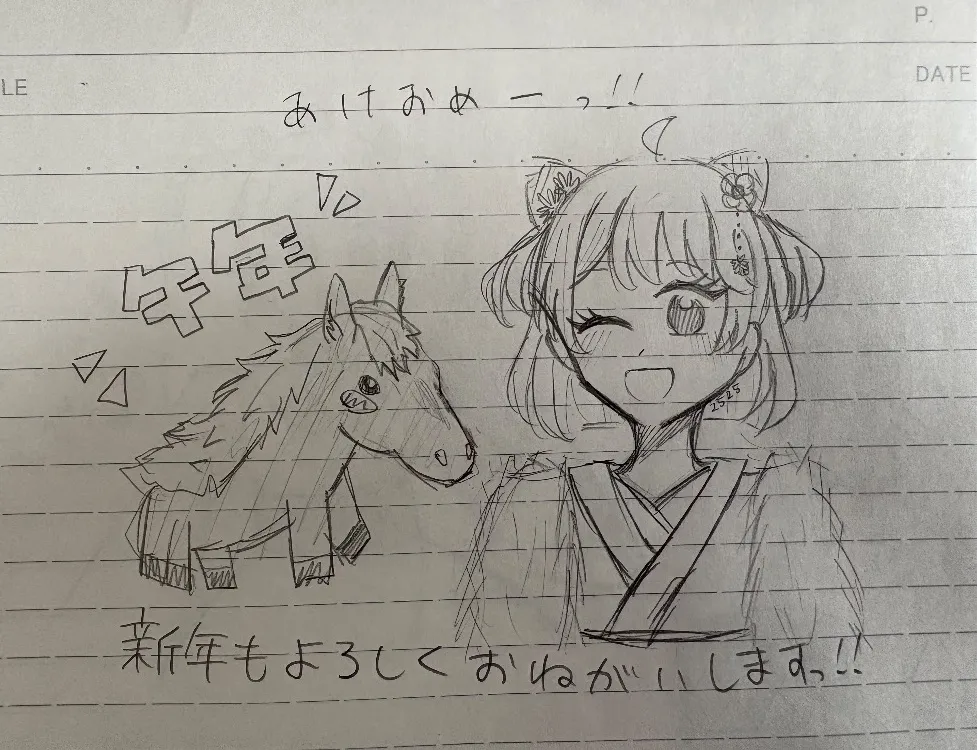 P.
LE
DATE
あけおめーっ!!
午年
2525
新年もよろしくおねがいしますっ!!